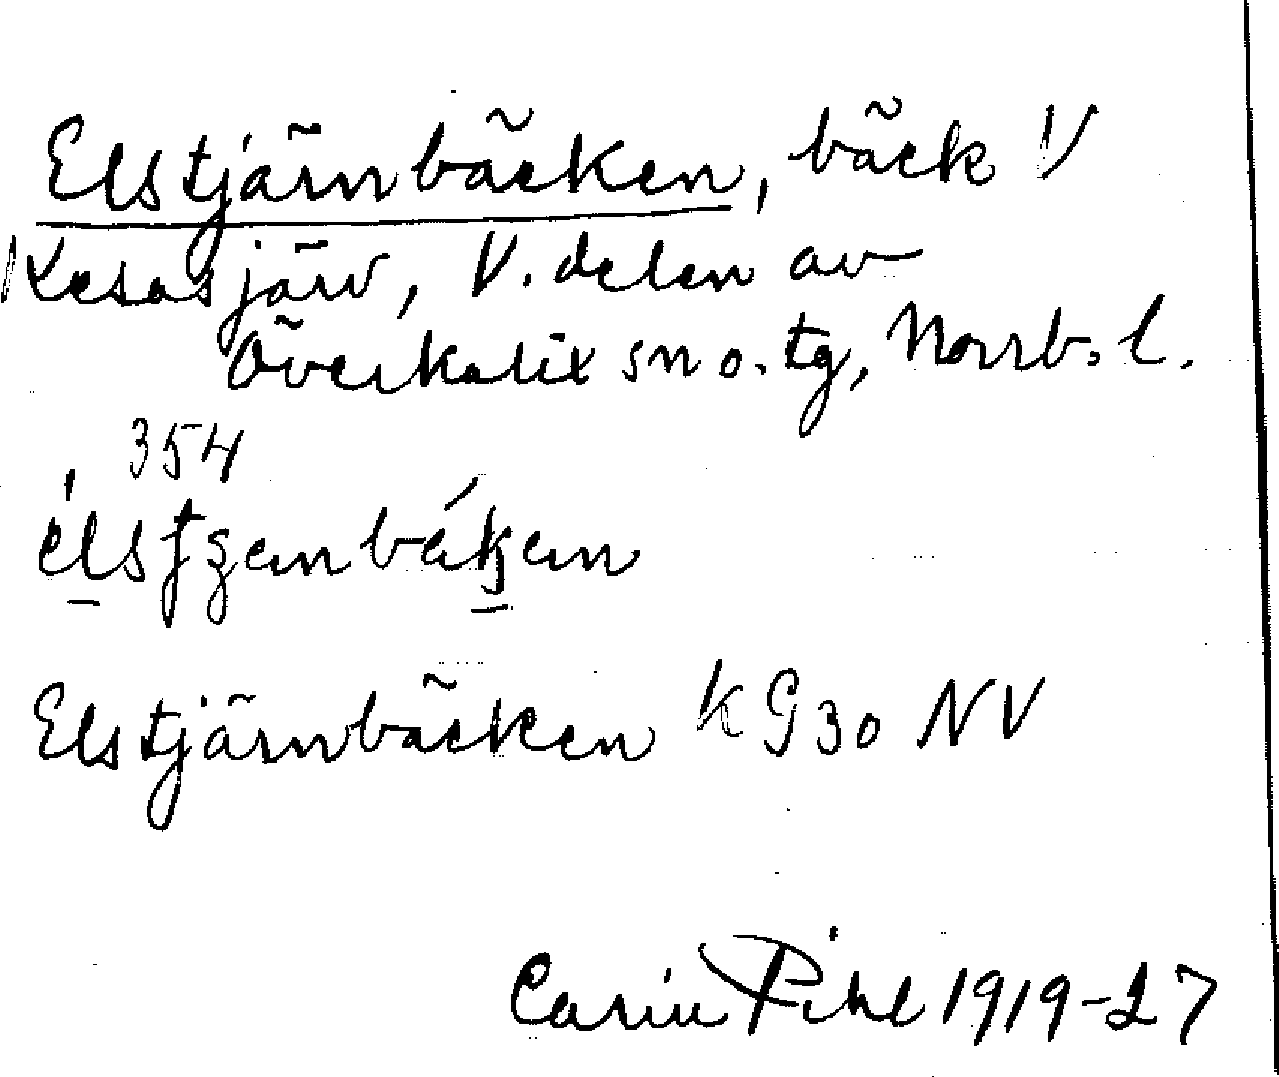 Elstjärnbäcken, bäck V
Lesasjärv, V. delen av
Överkalix sn o. tg, Norrb. l.
354
Elstjärnbäcken KG30 NV
Carin Pihl 1919-27